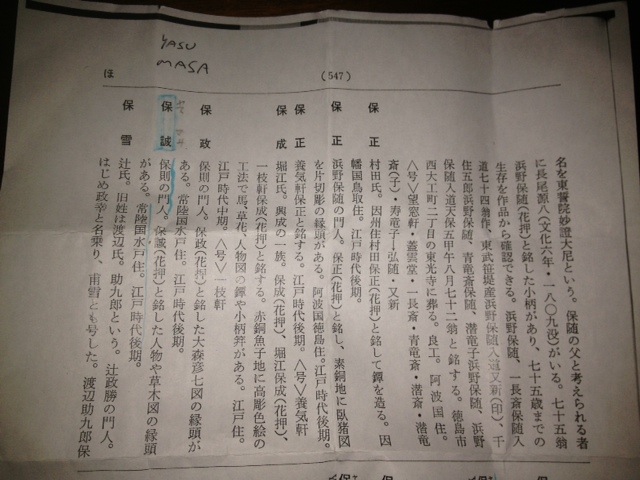 YASU
MASA
(547)
ほ
名を東誓院妙證大尼という。保随の父と考えられる者
に長尾源八(文化六年・一八〇九没)がいる。七十五翁
浜野保随(花押)と銘した小柄があり、七十五歳までの
生存を作品から確認できる。浜野保随、一長斎保随入
道七十四翁作、東武笹堤産浜野保随入道又新(印)、千
住五郎浜野保随、青竜斎保随、潜竜子浜野保随、浜野
保随入道天保五甲午八月七十二翁と銘する。徳島市
西大工町二丁目の東光寺に葬る。良工。阿波国住。
〈号〉望窓軒・蓋雲堂・一長斎・青竜斎・潜斎・潜竜
斎(子)・寿竜子・弘随・又新
保正 村田氏。因州住村田保正(花押)と銘して鐔を造る。因
幡国鳥取住。江戸時代後期。
保正 浜野保随の門人。保正(花押)と銘し、素銅地に臥猪図
を片切彫の縁頭がある。阿波国徳島住。江戸時代後期。
保正 養気軒保正と銘する。江戸時代後期。〈号〉養気軒
保成 堀江氏。興成の一族。保成(花押)、堀江保成(花押)、
一枝軒保成(花押)と銘する。赤銅魚子地に高彫色絵の
工法で馬、草花、人物図の鐔や小柄笄がある。江戸住。
江戸時代中期。〈号〉一枝軒
保政 保則の門人。保政(花押)と銘した大森彦七図の縁頭が
ある。常陸国水戸住。江戸時代後期。
保誠 保則の門人。保誠(花押)と銘した人物や草木図の縁頭
がある。常陸国水戸住。江戸時代後期。
保雪 辻氏。旧姓は渡辺氏。助九郎という。辻政勝の門人。
はじめ政幸と名乗り、甫雪とも号した。渡辺助九郎保